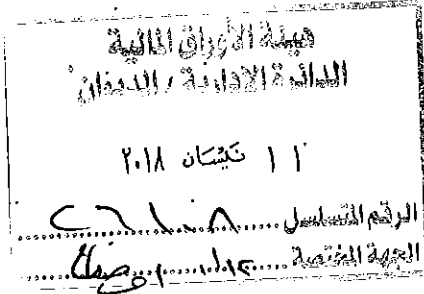 هيئة الأوراق المالية
الدائرة الادارية / الديوان
١١ نيسان ٢٠١٨
الرقم المتسلسل
الجهة المختصة